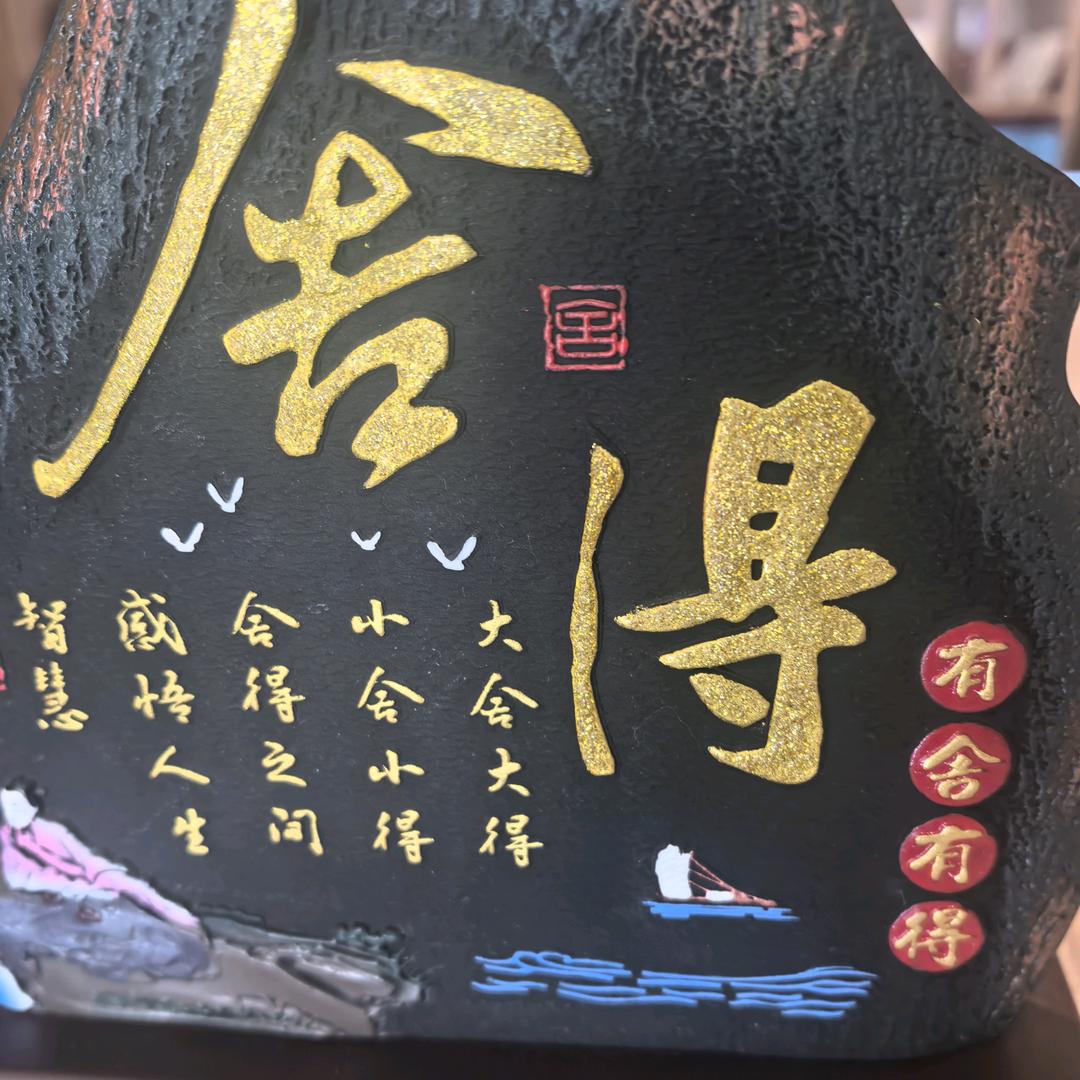 舍得
有舍有得
大舍大得
小舍小得
舍得之间
感悟人生
智慧